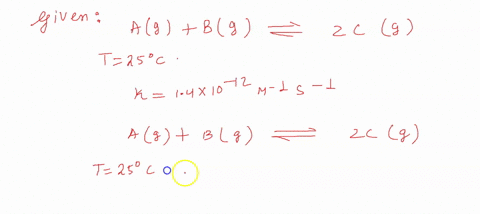 Given:
A(g) + B(g) ⇌ 2C (g)
T = 25°C.
K = 1.4 × 10⁻¹² M-1 S-1
A(g) + B(g) ⇌ 2C (g)
T = 25°C